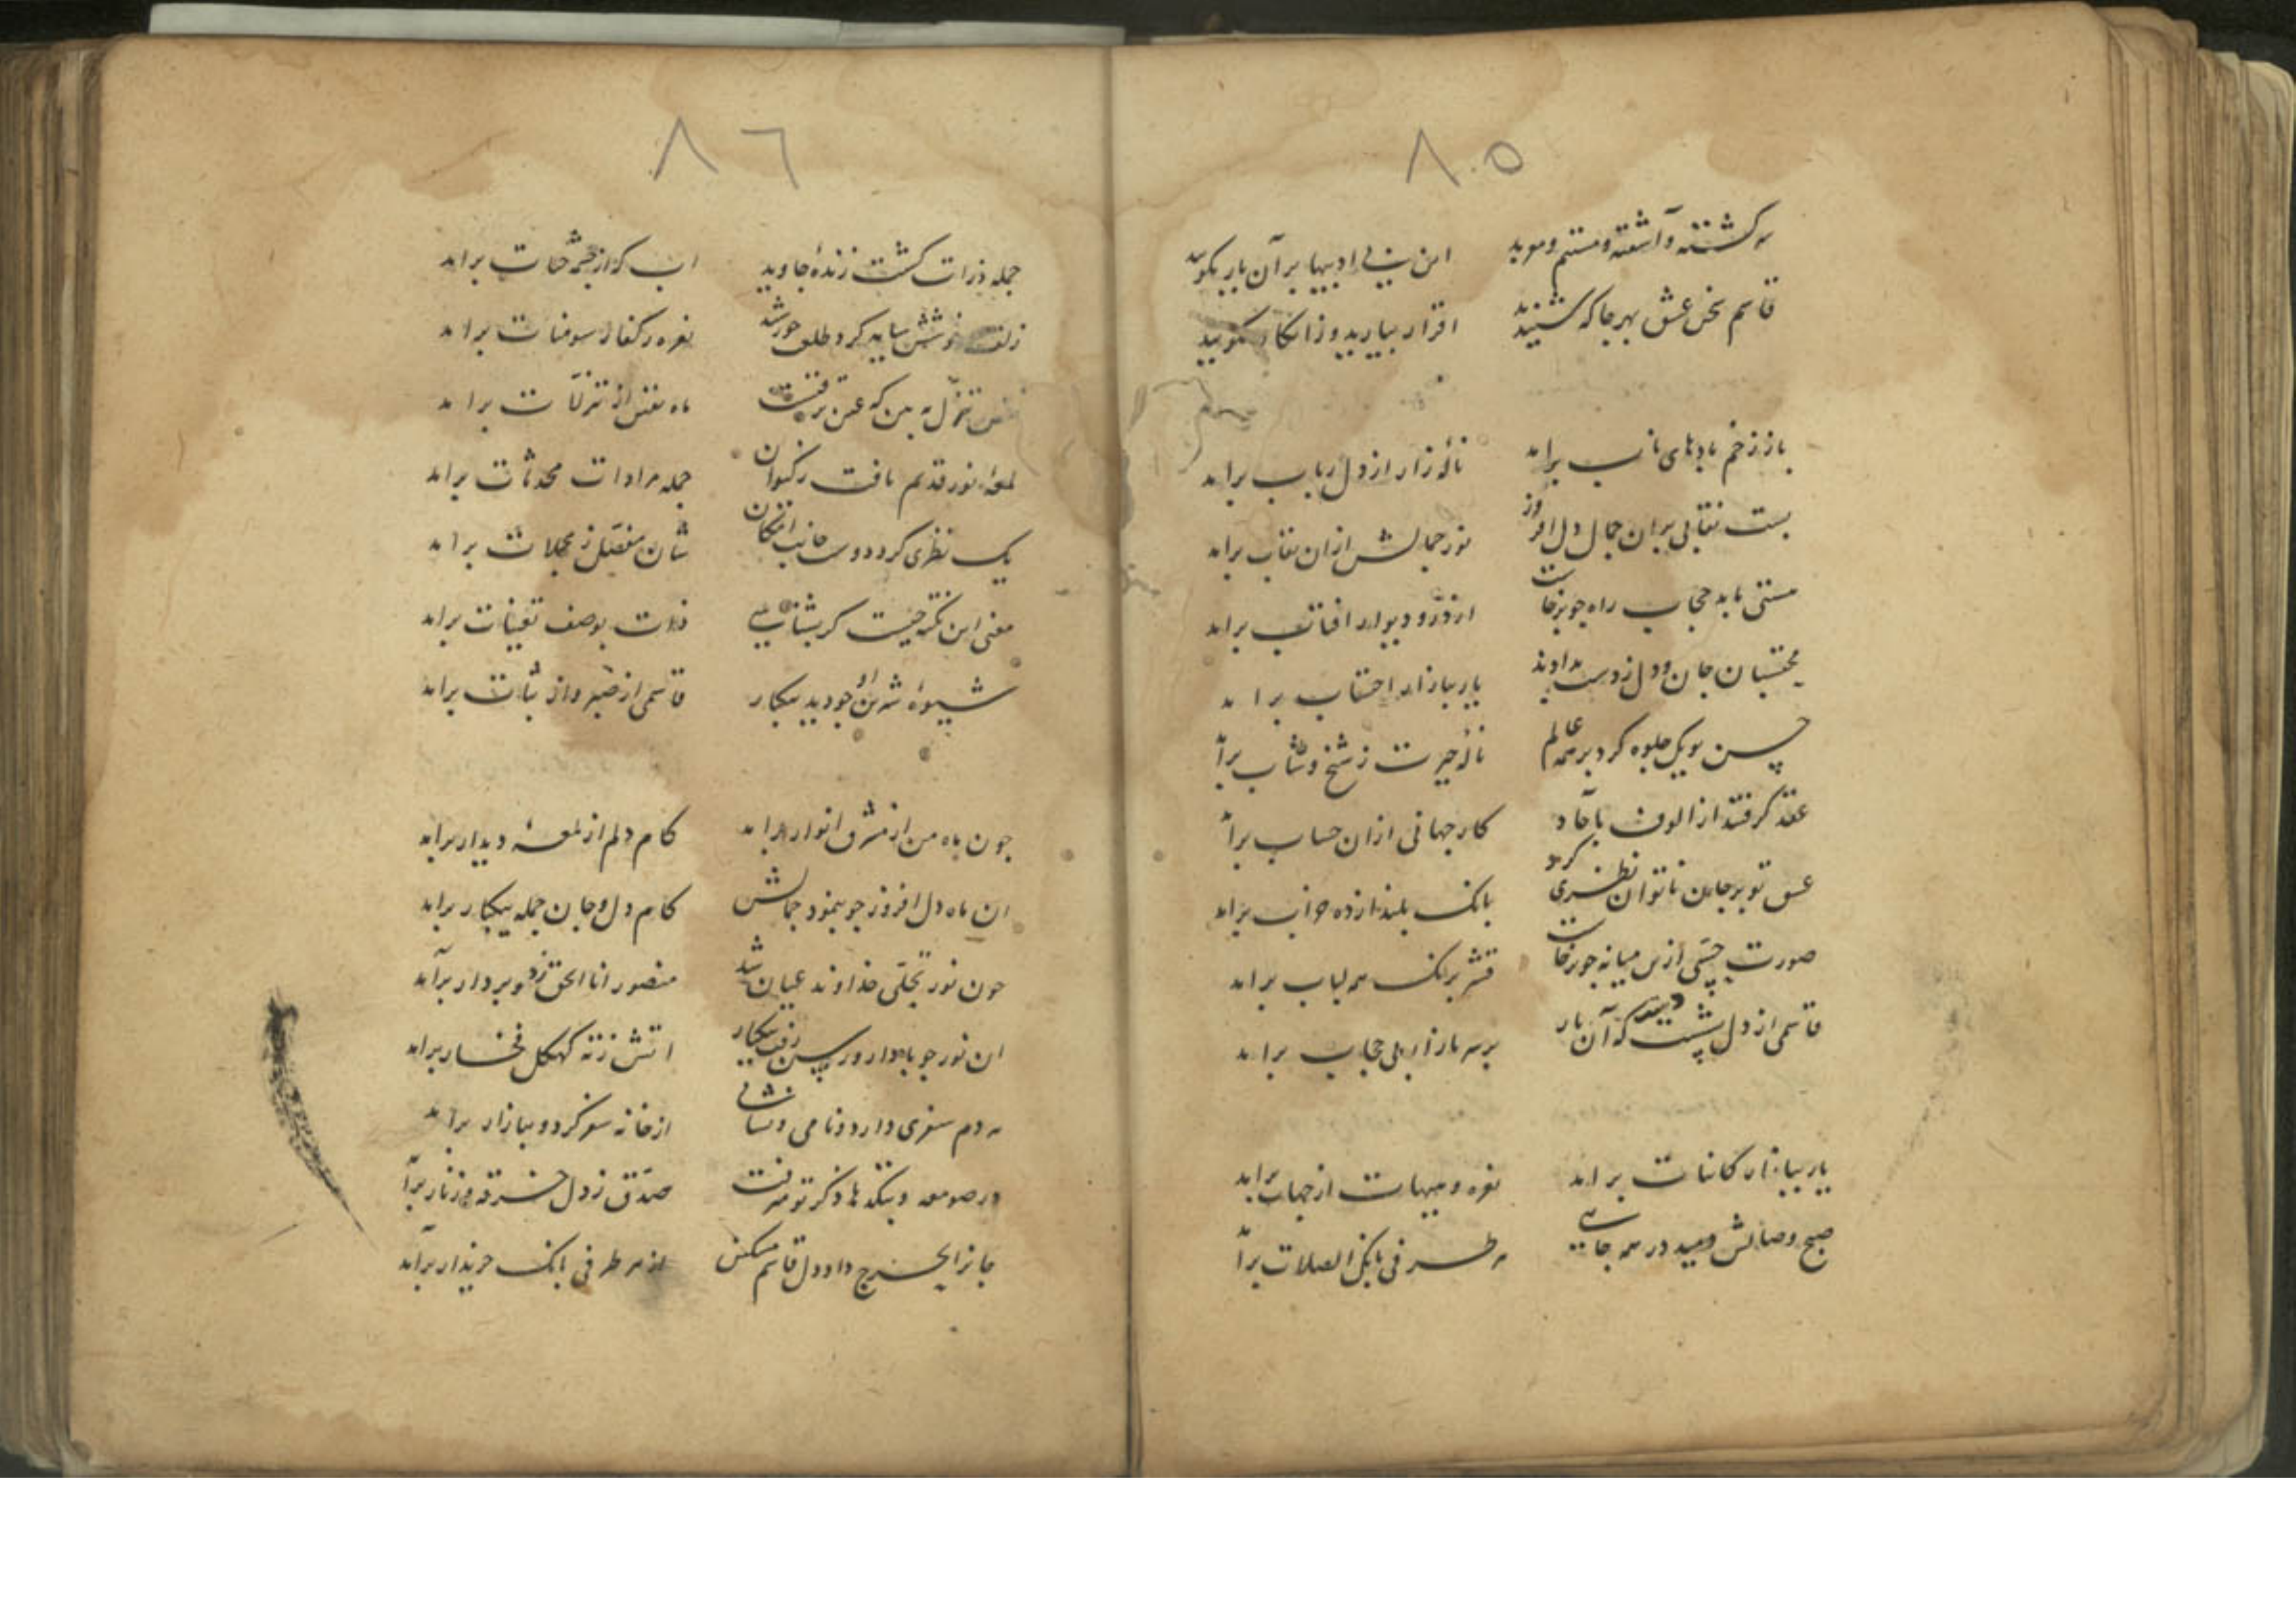 ۸۵
سرگشته و آشفته و مستم و موید این بی ادبیها بر آن یار بگویید
قاسم سخن عشق بهر جا که شنیدند اقرار بیارید و ز انکار مگویید
باز ز زخم بادهای ناب براید نالهٔ زار از دل رباب براید
بست نقابی بران جمال دل افروز نور جمالش ازان نقاب براید
مستی ما بد حجاب راه جو برخاست از در و دیوار افتاب براید
محتسبان جان و دل ز دست بدادند یار ببازار احتساب براید
حسن تو یک جلوه کرد بر همه عالم نالهٔ حیرت ز شیخ و شاب برآ
عقد گرفتند از الوف باحاد کار جهانی ازان حساب برآ
عشق تو بر جان ناتوان نظری کرد بانک بلند از ده خراب براید
صورت حسی ازین میانه جو برخاست قشر برنک همه لباب براید
قاسمی از دل بشست دست که آن یار بر سر بازار بی حجاب براید
یار ببازار کاینات براید نعره و هیهات از جهات براید
صبح وصالش دمید در همه جایی هر طرفی بانک الصلات برآ
۸۶
جمله ذرات گشت زندهٔ جاوید اب که از چشمه حیات براید
زلف خوشش سایه کرد طلعت خورشید نعره ز کفار سومنات براید
تنزل به بین که عین ترقیست ماه نقش از تنزلات براید
لمعهٔ نور قدیم یافت ز کیوان جمله مرادات محدثات براید
یک نظری کرد دوست جانب امکان شان مفصل ز مجملات براید
معنی این نکته چیست کر بشناسی ذات بوصف تعینات براید
شیوهٔ شیرین او جو دید بیکبار قاسمی از صبر و از ثبات براید
جون ماه من از مشرق انوار براید کام دلم از لمعهٔ دیدار براید
ان ماه دل افروز جو بنمود جمالش کام دل و جان جمله بیکبار براید
جون نور تجلی خداوند عیان شد منصور انا الحق زد و بر دار برآید
ان نور جو با دار و رسن رفت بیکبار اتش ز ته کهکل فخار براید
هر دم سفری دارد و نامی و نشانی از خانه سفر کرد و ببازار براید
در صومعه و بتکدها ذکر تو میرفت صدق ز دل خرقه و زنار برآ
جانرا بحرج داد دل قاسم مسکین از هر طرفی بانک خریدار برآید